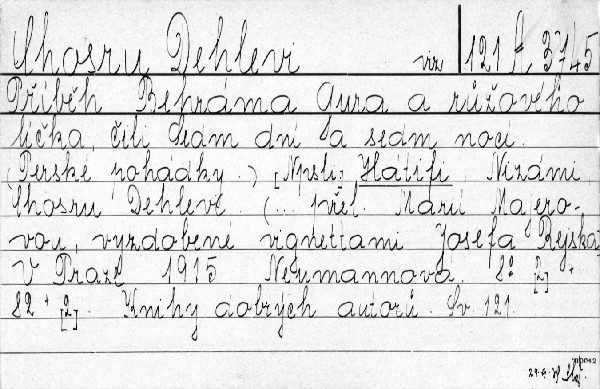 Chosru Dehlevi viz 121 A 3745
Příběh Behráma Gura a růžového
líčka, čili sedm dní a sedm nocí.
(Perské pohádky.) [Npsli] Hátifi, Nizámí,
Chosru Dehlevi. (... přel. Marií Majero-
vou, vyzdobené vignettami Josefa Rejska.
V Praze 1915 Neumannová. 8° [2] +
82 + [2]. Knihy dobrých autorů. Sv. 121.